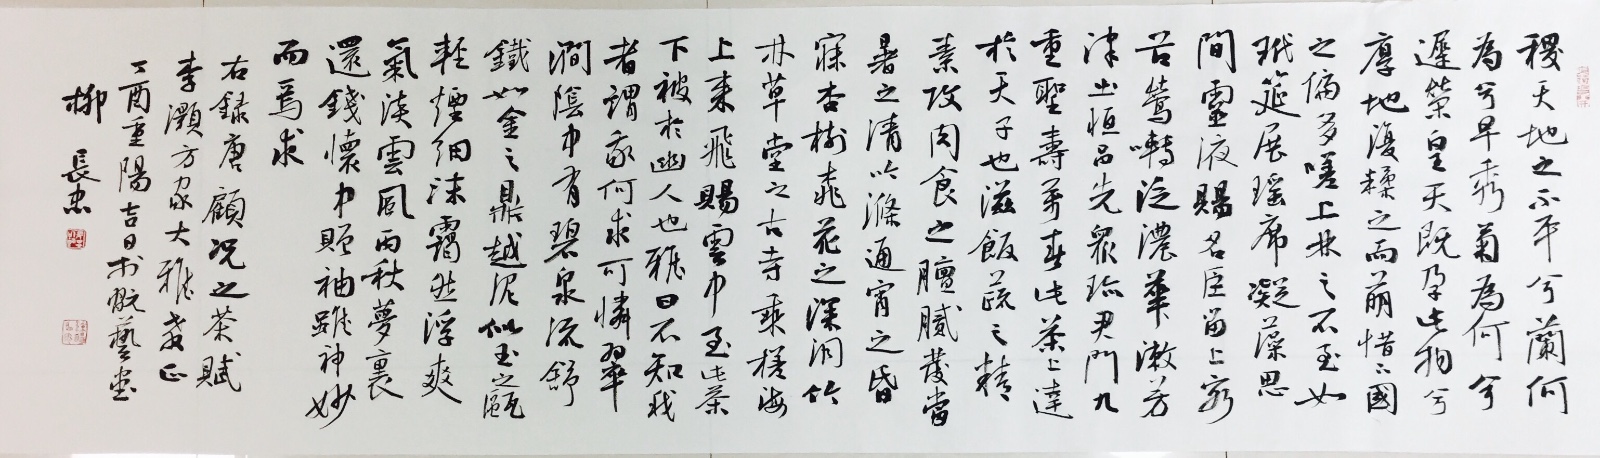 稷天地之不平兮蘭何
為兮早秀菊為何兮
遲榮皇天既孕此物兮
厚地復糅之而萌惜下國
之偏多嗟上林之不至如
玳筵展瑤席凝藻思
間靈液賜名臣留上客
谷鶯囀泛濃華漱芳
津出恒品先眾珍君門九
重聖壽萬春此茶上達
於天子也滋飯蔬之精
素攻肉食之膻膩發當
暑之清吟滌通宵之昏
寐杏樹桃花之深洞竹
林草堂之古寺乘槎海
上來飛賜雲中至此茶
下被於幽人也雅曰不知我
者謂我何求可憐翠
澗陰中有碧泉流舒
鐵如金之鼎越泥似玉之甌
輕煙細沫靄然浮爽
氣淡雲風雨秋夢裏
還錢懷中贈袖雖神妙
而焉求
右録唐顧況之茶賦
李灝方家大雅教正
丁酉重陽吉日於藝堂
柳長忠